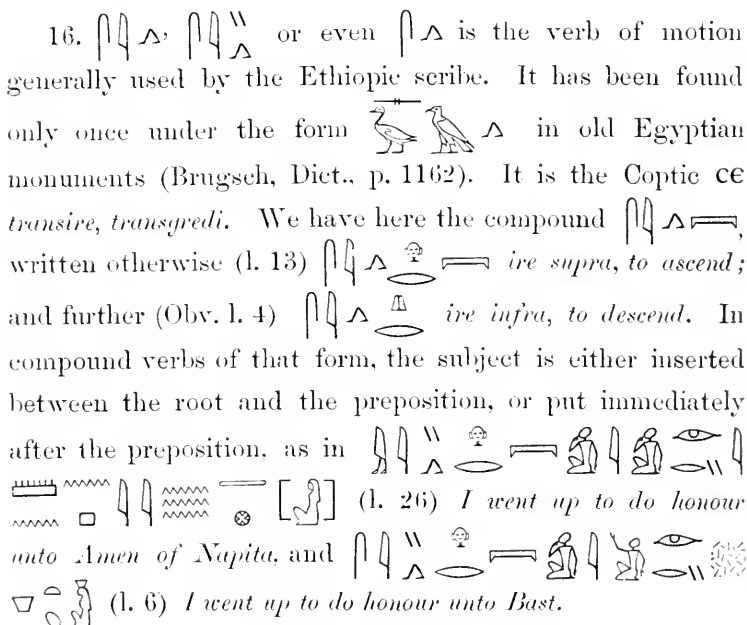 16. or even is the verb of motion
generally used by the Ethiopic scribe. It has been found
only once under the form in old Egyptian
monuments (Brugsch, Dict., p. 1162). It is the Coptic ⲥⲉ
transire, transgredi. We have here the compound ,
written otherwise (l. 13) ire supra, to ascend;
and further (Obv. l. 4) ire infra, to descend. In
compound verbs of that form, the subject is either inserted
between the root and the preposition, or put immediately
after the preposition, as in
(l. 26) I went up to do honour
unto Amen of Napita, and
(l. 6) I went up to do honour unto Bast.